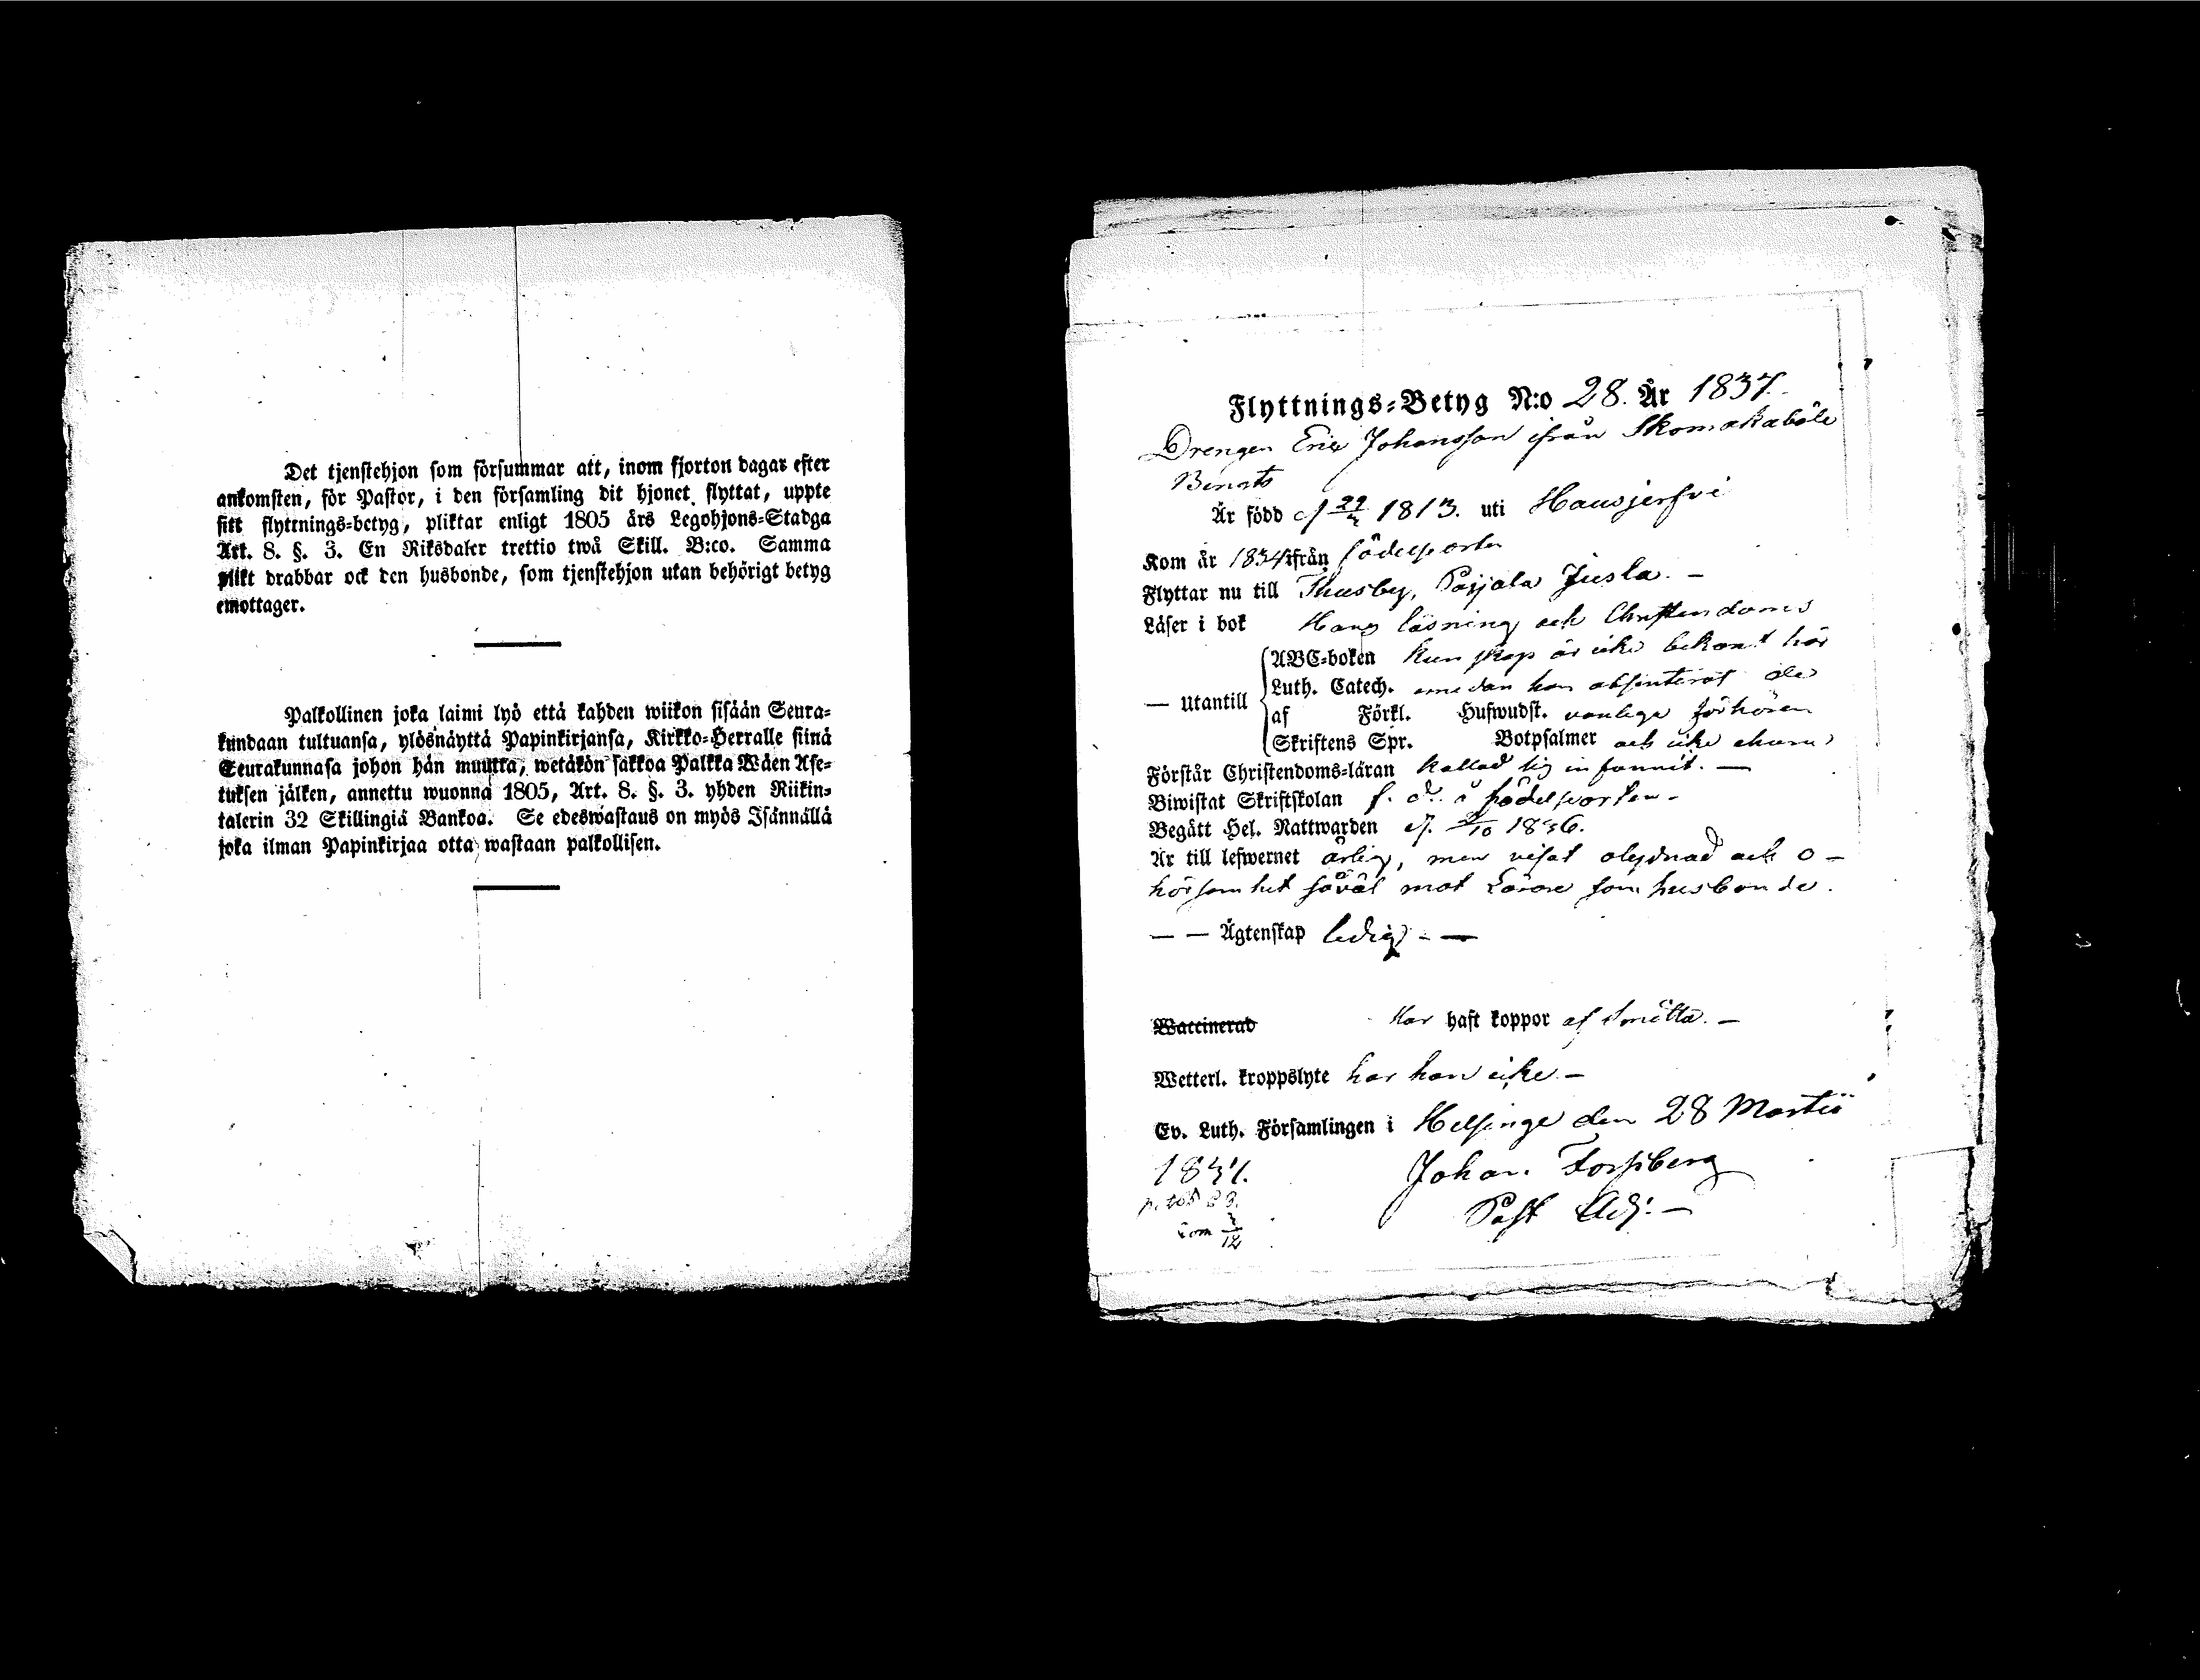 Det tjenstehjon som försummar att, inom fjorton dagar efter
ankomsten, för Pastor, i den församling dit hjonet flyttat, uppte
sitt flyttnings-betyg, pliktar enligt 1805 års Legohjons-Stadga
Art. 8. §. 3. En Riksdaler trettio twå Skill. B:co. Samma
plikt drabbar ock den husbonde, som tjenstehjon utan behörigt betyg
emottager.
Palkollinen joka laimi lyö että kahden wiikon sisään Seura-
kundaan tultuansa, ylösnäyttä Papinkirjansa, Kirkko-Herralle siinä
Seurakunnasa johon hän muutta, wetäkön sakkoa Palkka Wäen Ase-
tuksen jälken, annettu wuonna 1805, Art. 8. §. 3. yhden Riikin-
talerin 32 Skillingiä Bankoa. Se edeswastaus on myös Isännällä
joka ilman Papinkirjaa otta wastaan palkollisen.
Flyttnings-Betyg N:o 28. År 1837.
Drengen Eric Johansson ifrån Skomakaböle
Bengts
Är född d 22 1813. uti Hausjerfvi
Kom år 1834 ifrån födelseorten
Flyttar nu till Thusby, Parjala Jusla. —
Läser i bok Hans läsning och Christendoms
ABC-boken kunskap är icke bekant här
— Utantill Luth. Catech. emedan han absenterat de
af Förkl. Hufwudst. vanliga förhören
Skriftens Spr. Botpsalmer och icke ehuru
Förstår Christendoms-läran kallad sig infunnit. —
Biwistat Skriftskolan f. d. å födelseorten —
Begått Hel. Nattwarden d. 2/10 1836.
Är till lefwernet ärlig, men visat olydnad och o-
hörsamhet såväl mot Lärare som husbonde.
— — Ägtenskap ledig — —
Waccinerad Har haft koppor af Smitta. —
Wetterl. kroppslyte har han icke —
Ev. Luth. Församlingen i Helsinge den 28 Martii
1837. Johan Forssberg
Past Adj: —